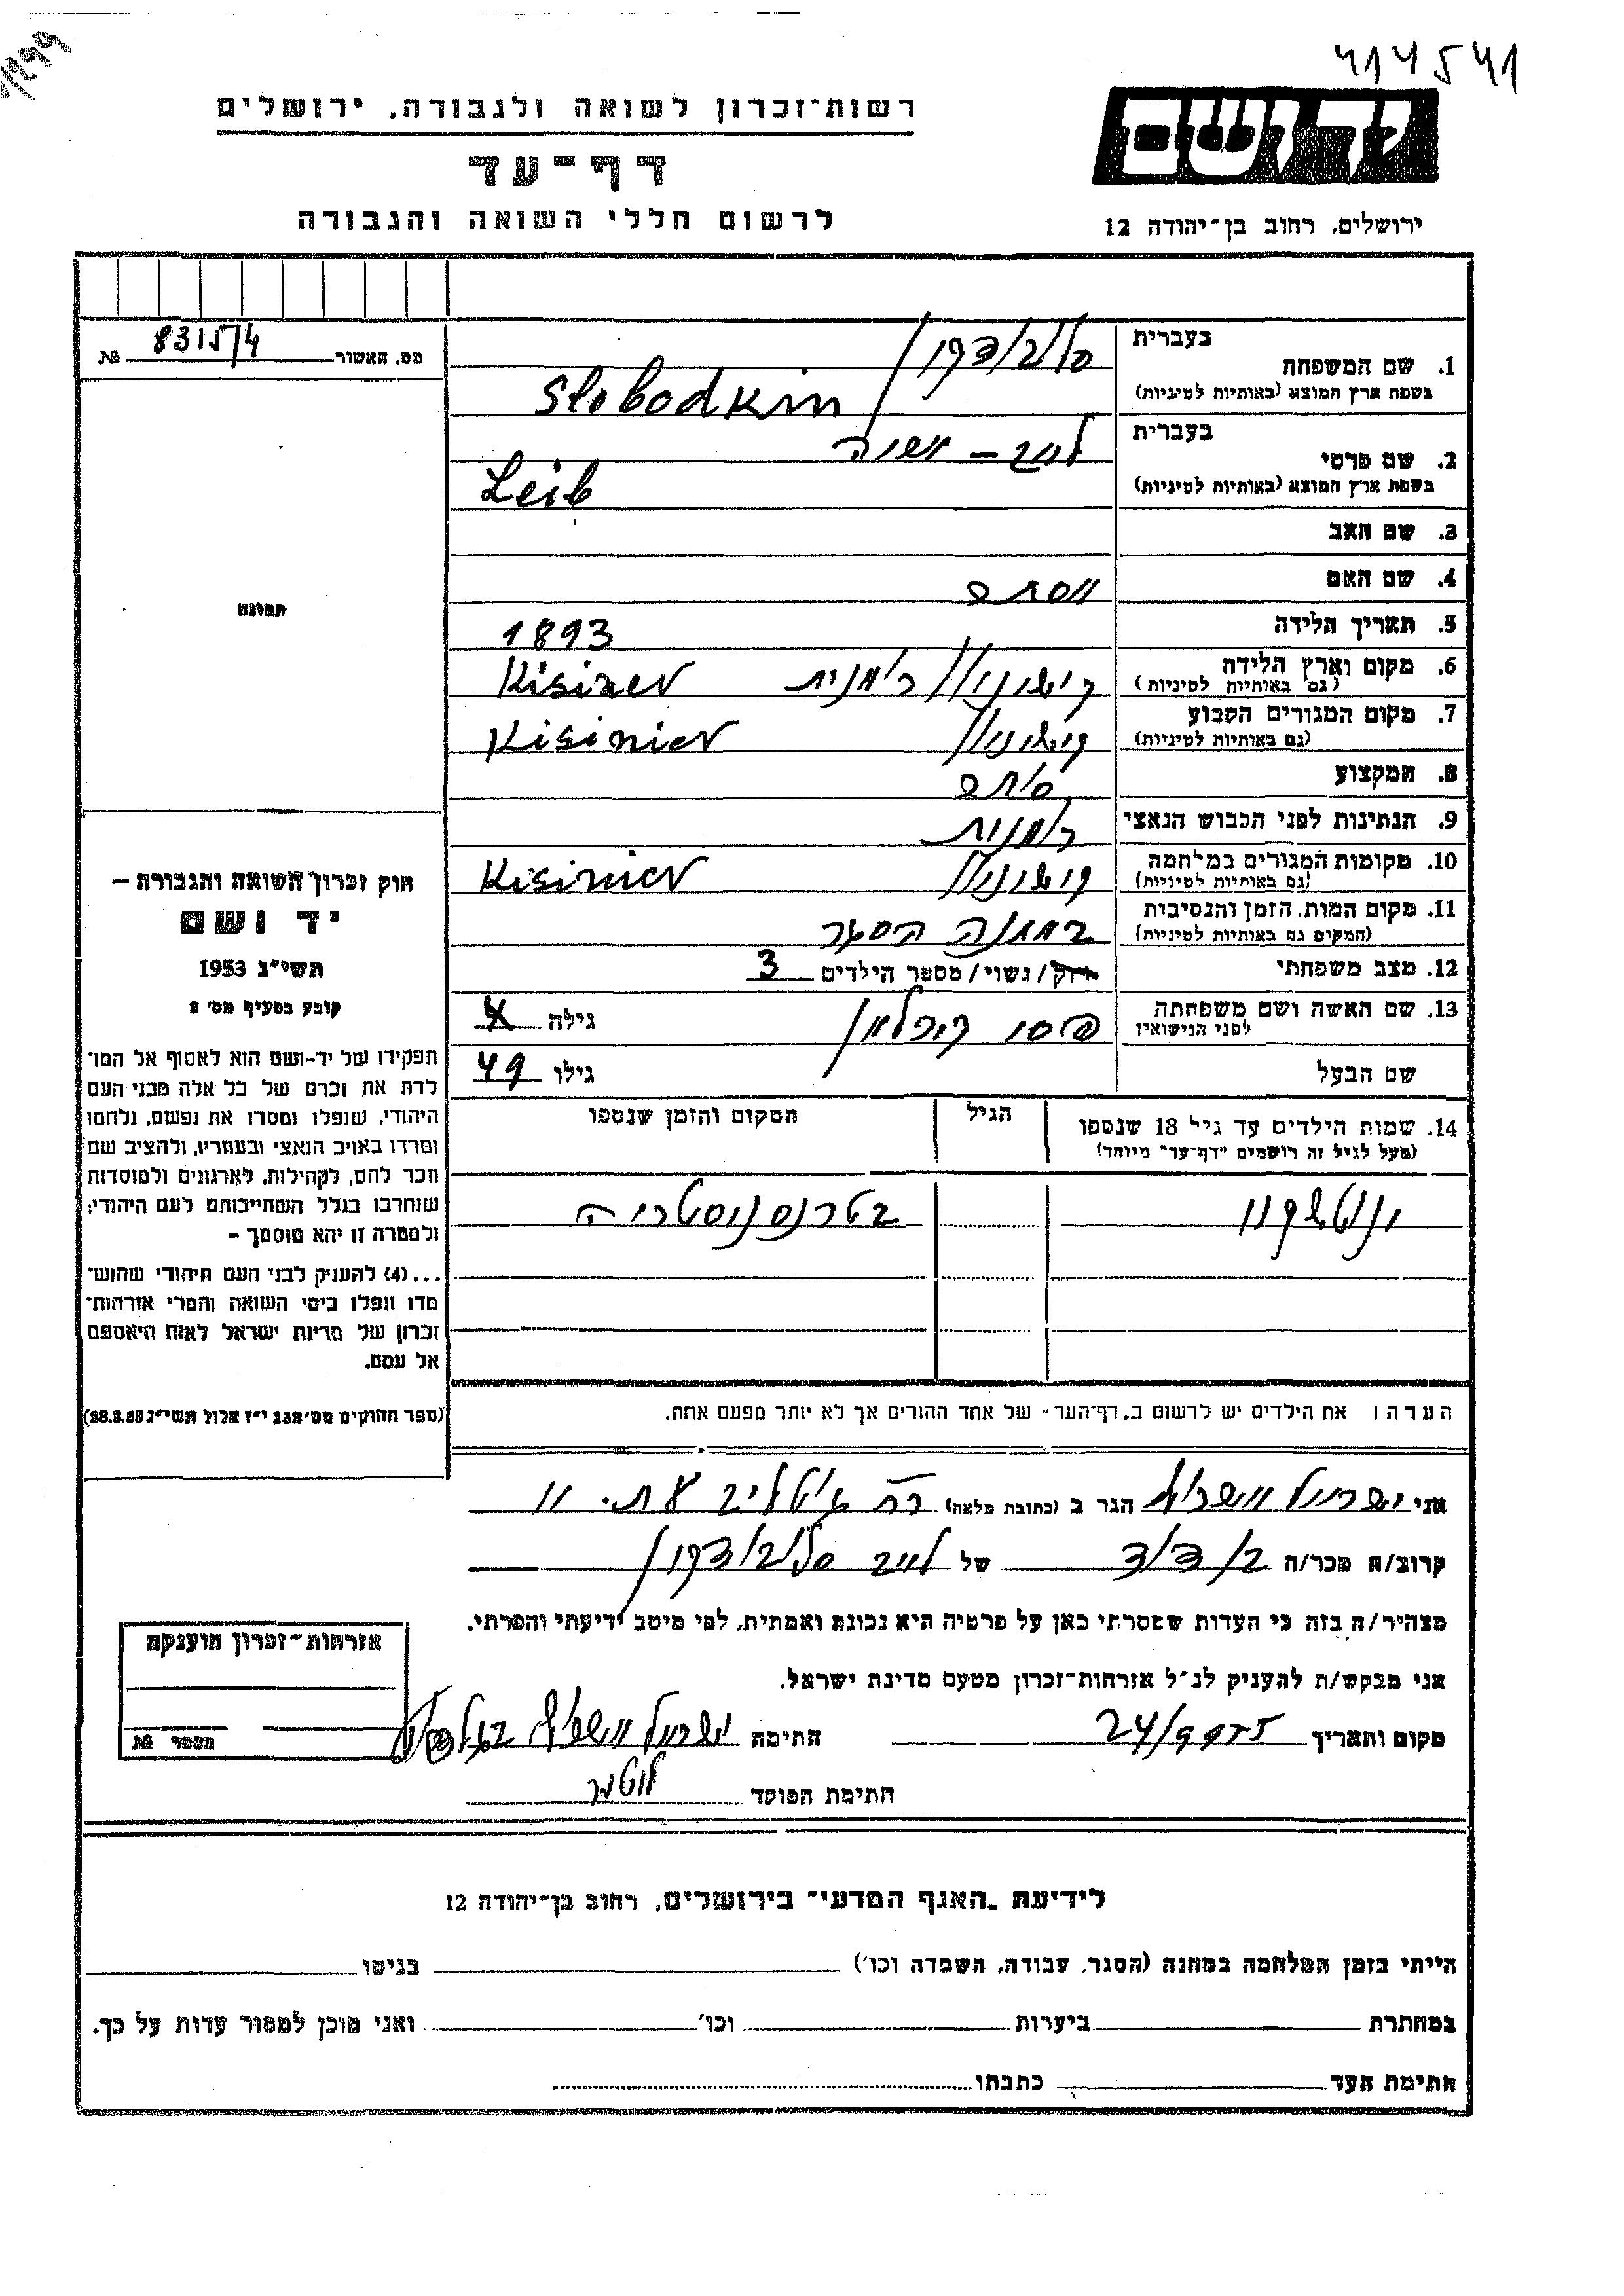 414541
רשות־זכרון לשואה ולגבורה, ירושלים
יד ושם
דף־עד
לרשום חללי השואה והגבורה
ירושלים, רחוב בן־יהודה 12
מס. האשור 8315/4 №
1. שם המשפחה בעברית סלובודקין
בשפת ארץ המוצא (באותיות לטיניות) Slobodkin
2. שם פרטי בעברית לייב –
בשפת ארץ המוצא (באותיות לטיניות) Leib
3. שם האב
4. שם האם
תמונה
5. תאריך הלידה 1893
6. מקום וארץ הלידה (גם באותיות לטיניות) קישיניוו רומנית Kisinev
7. מקום המגורים הקבוע (גם באותיות לטיניות) קישיניוו Kisiniev
8. המקצוע סוחר
9. הנתינות לפני הכבוש הנאצי רומנית
10. מקומות המגורים במלחמה (גם באותיות לטיניות) קישיניוו Kisiniev
11. מקום המות, הזמן והנסיבות (המקום גם באותיות לטיניות) במחנה הסגר
12. מצב משפחתי רוק/נשוי/ מספר הילדים 3
13. שם האשה ושם משפחתה לפני הנישואין קפלאן גילה
שם הבעל גילו 49
14. שמות הילדים עד גיל 18 שנספו הגיל המקום והזמן שנספו
(מעל לגיל זה רושמים "דף־עד" מיוחד)
בטרנסניסטריה
חוק זכרון השואה והגבורה –
יד ושם
תשי"ג 1953
קובע בסעיף מס' 2
תפקידו של יד־ושם הוא לאסוף אל המו־
לדת את זכרם של כל אלה מבני העם
היהודי, שנפלו ומסרו את נפשם, נלחמו
ומרדו באויב הנאצי ובעוזריו, ולהציב שם
וזכר להם, לקהילות, לארגונים ולמוסדות
שנחרבו בגלל השתייכותם לעם היהודי;
ולמטרה זו יהא מוסמך –
...(4) להעניק לבני העם היהודי שהוש־
מדו ונפלו בימי השואה והמרי אזרחות־
זכרון של מדינת ישראל לאות היאספם
אל עמם.
(ספר החוקים מס' 132 י"ז אלול תשי"ג 28.8.53)
הערה: את הילדים יש לרשום ב„דף־העד" של אחד ההורים אך לא יותר מפעם אחת.
אני ישראל הגר ב (כתובת מלאה) רח 11
קרוב/ה מכר/ה של לייב סלובודקין
מצהיר/ה בזה כי העדות שמסרתי כאן על פרטיה היא נכונה ואמתית, לפי מיטב ידיעתי והכרתי.
אני מבקש/ת להעניק לנ"ל אזרחות־זכרון מטעם מדינת ישראל.
מקום ותאריך 24/ חתימה ישראל
חתימת הפוקד
אזרחות־זכרון הוענקה
מספר №
לידיעת „האגף המדעי" בירושלים, רחוב בן־יהודה 12
הייתי בזמן המלחמה במחנה (הסגר, עבודה, השמדה וכו') בגיטו
במחתרת ביערות וכו' ואני מוכן למסור עדות על כך.
חתימת העד כתבתו